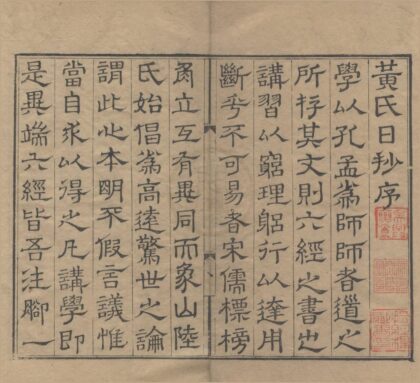 黃氏日抄序
學以孔孟為師師者道之
所存其文則六經之書也
講習以窮理躬行以達用
斷乎不可易者宋儒標榜
角立互有異同而象山陸
氏始倡為高遠驚世之論
謂此心本明不假言議惟
當自求以得之凡講學即
是異端六經皆吾注腳一